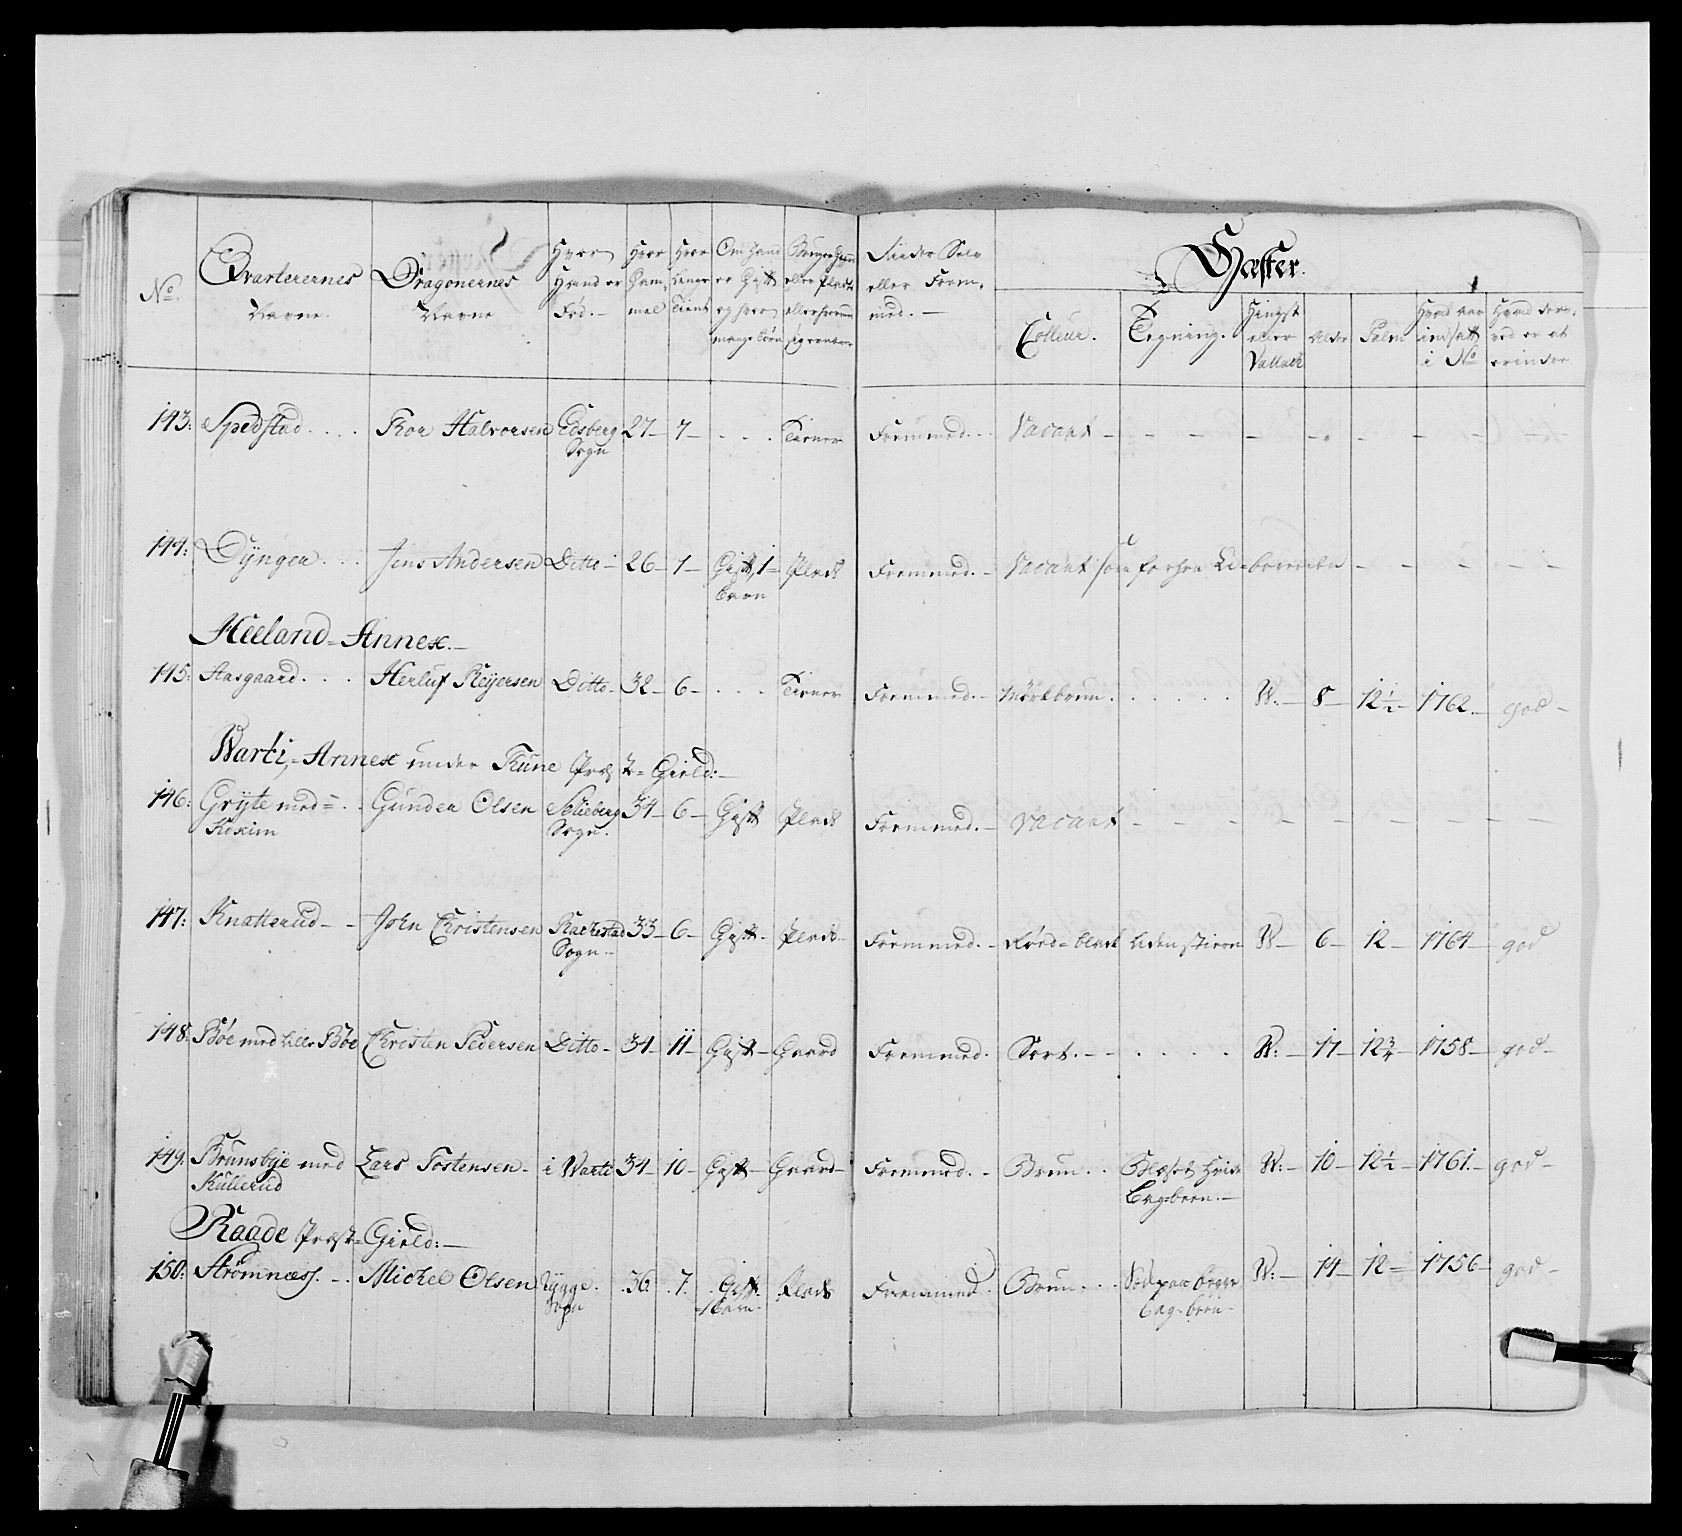 No. Qvarterernes Navne. Dragonernes Navne Hvor Hand er Fød. Hvor Gammel Hvor Længe Tient Om Hand er Gift og hvor mange børn Hæster.
Colleur. Tegning. Hingst eller Vallack Alder Palm Hvad aar indsatt i No Hvad derved er at erindre
143: Spedstad Thor Halvorsen Edsberg Sogn 27 7 Tiener Fremmed Vacant
144: Dÿngen Jens Andersen Ditto 26 1 Gift, 1 barn Plads Fremmed Vacant
Heeland-Annex.
145: Aasgaard Herluf Reÿersen Ditto 32 6 Tiener Fremmed Mørkbrun W: 8 12½ 1762 god
Warti, Annex under Thune Præst-Gield:
146: Grÿte med Koxim Gunder Olsen Schieberg Sogn 34 6 Gift Plads Fremmed Vacant
147: Knatterud John Christensen Rackestad Sogn 33 6 Gift Plads Fremmed uden stierne W 6 12 1764 god
148: Bøe med Lille Bøe Christen Pedersen Ditto 34 11 Gift Gaard Fremmed Sort W: 17 12¾ 1758 god
149: Brunsbÿe med Kullerud Lars Tostensen i Warti 34 10 Gift Gaard Fremmed Brun Blæset Hvide Bagbeen W: 10 12½ 1761 god
Raade Præst-Gield:
150: Strømnæss Michel Olsen Rygge Sogn 36 7 Gift 1 barn Plads Fremmed Brun begge bag-been W: 14 12 1756 god